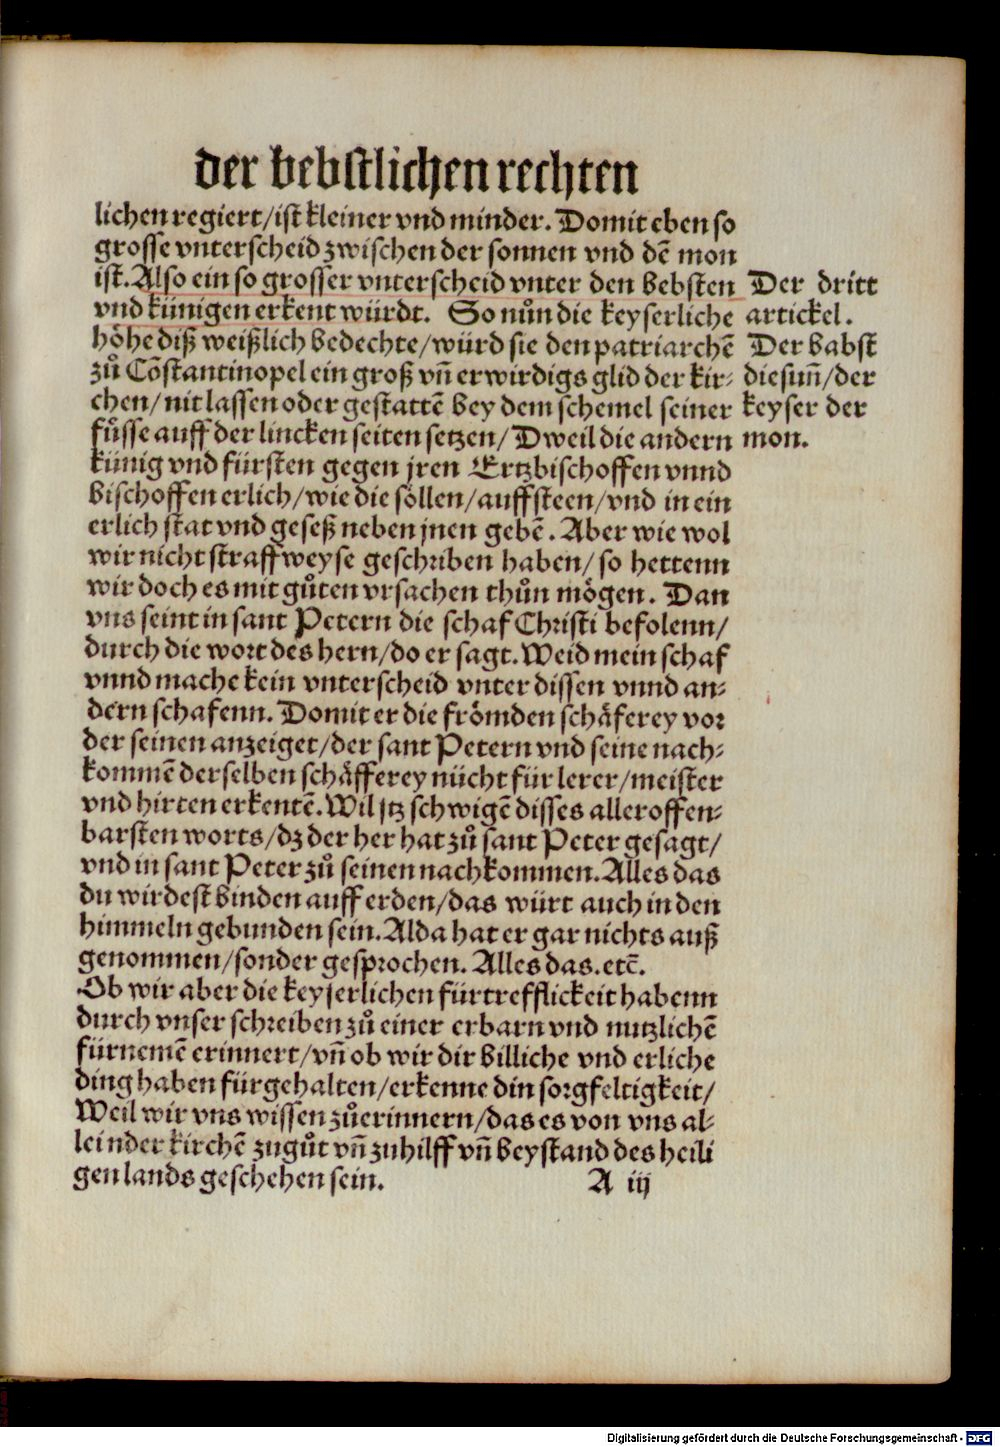 der bebstlichen rechten
lichen regiert/ist kleiner vnd minder. Domit eben so
grosse vnterscheid zwischen der sonnen vnd dē mon
ist. Also ein so grosser vnterscheid vnter den bebsten
vnd künigen erkent würdt. So nůn die keyserliche
höhe diß weißlich bedechte/würd sie den patriarchē
zů Cōstantinopel ein groß vn̄ erwirdigs glid der kir-
chen/nit lassen oder gestattē bey dem schemel seiner
fůsse auff der lincken seiten setzen/Dweil die andern
künig vnd fürsten gegen jren Ertzbischoffen vnnd
bischoffen erlich/wie die söllen/auffsteen/vnd in ein
erlich stat vnd geseß neben jnen gebē. Aber wie wol
wir nicht straffweyse geschriben haben/so hettenn
wir doch es mit gůten vrsachen thůn mögen. Dan
vns seint in sant Petern die schaf Christi befolenn/
durch die wort des hern/do er sagt. Weid mein schaf
vnnd mache kein vnterscheid vnter dissen vnnd an-
dern schafenn. Domit er die frömden schäferey vor
der seinen anzeiget/der sant Petern vnd seine nach-
kommē derselben schäfferey nücht für lerer/meister
vnd hirten erkentē. Wil jtz schwigē disses alleroffen-
barsten worts/dz der her hat zů sant Peter gesagt/
vnd in sant Peter zů seinen nachkommen. Alles das
du wirdest binden auff erden/das würt auch in den
himmeln gebunden sein. Alda hat er gar nichts auß
genommen/sonder gesprochen. Alles das. etc̄.
Ob wir aber die keyserlichen fürtrefflickeit habenn
durch vnser schreiben zů einer erbarn vnd nutzlichē
fürnemē erinnert/vn̄ ob wir dir billiche vnd erliche
ding haben fürgehalten/erkenne din sorgfeltigkeit/
Weil wir vns wissen zůerinnern/das es von vns al-
lein der kirchē zugůt vn̄ zuhilff vn̄ beystand des heili
gen lands geschehen sein.
A iij
Der dritt
artickel.
Der babst
die sun̄/der
keyser der
mon.
Digitalisierung gefördert durch die Deutsche Forschungsgemeinschaft - DFG